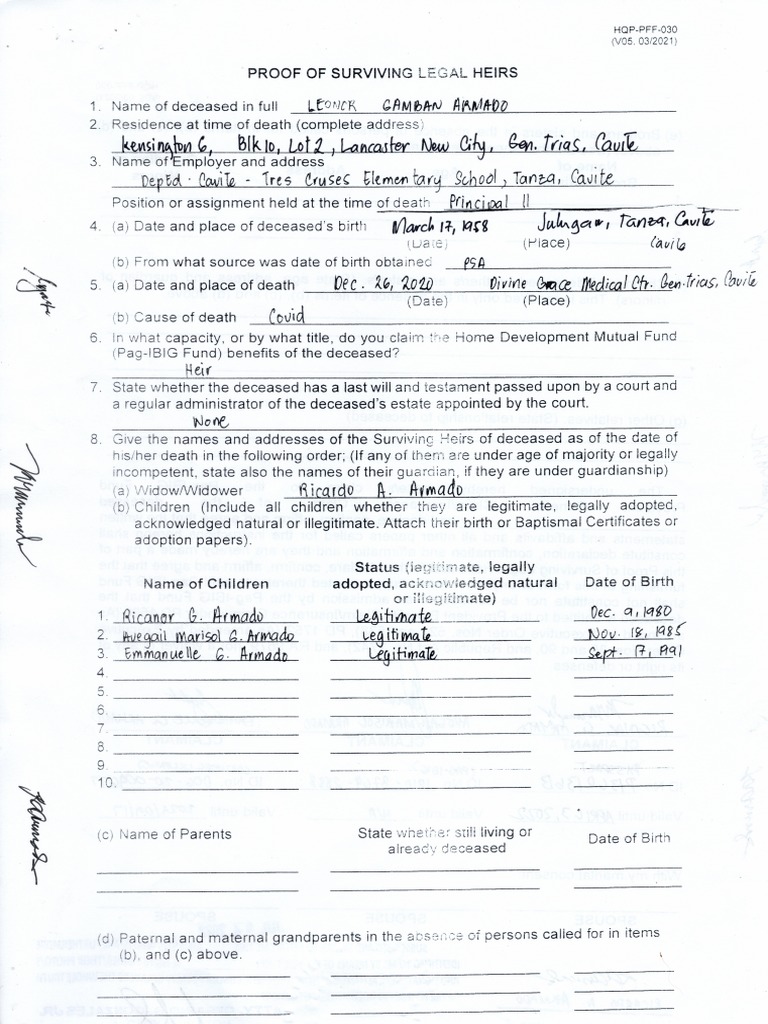 HQP-PFF-030
(V05, 03/2021)
PROOF OF SURVIVING LEGAL HEIRS
1. Name of deceased in full LEONOR GAMBAN ARMADO
2. Residence at time of death (complete address)
Kensington 6, Blk 10, Lot 2, Lancaster New City, Gen. Trias, Cavite
3. Name of Employer and address
DepEd - Cavite - Tres Cruses Elementary School, Tanza, Cavite
Position or assignment held at the time of death Principal II
4. (a) Date and place of deceased's birth March 17, 1958 Julugan, Tanza, Cavite
(Date) (Place) Cavite
(b) From what source was date of birth obtained PSA
5. (a) Date and place of death Dec. 26, 2020 Divine Grace Medical Ctr. Gen. Trias, Cavite
(Date) (Place)
(b) Cause of death Covid
6. In what capacity, or by what title, do you claim the Home Development Mutual Fund
(Pag-IBIG Fund) benefits of the deceased?
Heir
7. State whether the deceased has a last will and testament passed upon by a court and
a regular administrator of the deceased's estate appointed by the court.
None
8. Give the names and addresses of the Surviving Heirs of deceased as of the date of
his/her death in the following order; (If any of them are under age of majority or legally
incompetent, state also the names of their guardian, if they are under guardianship)
(a) Widow/Widower Ricardo A. Armado
(b) Children (Include all children whether they are legitimate, legally adopted,
acknowledged natural or illegitimate. Attach their birth or Baptismal Certificates or
adoption papers).
Name of Children Status (legitimate, legally adopted, acknowledged natural or illegitimate) Date of Birth
1. Ricanor G. Armado Legitimate Dec. 9, 1980
2. Avegail Marisol G. Armado Legitimate Nov. 18, 1985
3. Emmanuelle G. Armado Legitimate Sept. 17, 1991
4.
5.
6.
7.
8.
9.
10.
(c) Name of Parents State whether still living or already deceased Date of Birth
(d) Paternal and maternal grandparents in the absence of persons called for in items
(b), and (c) above.